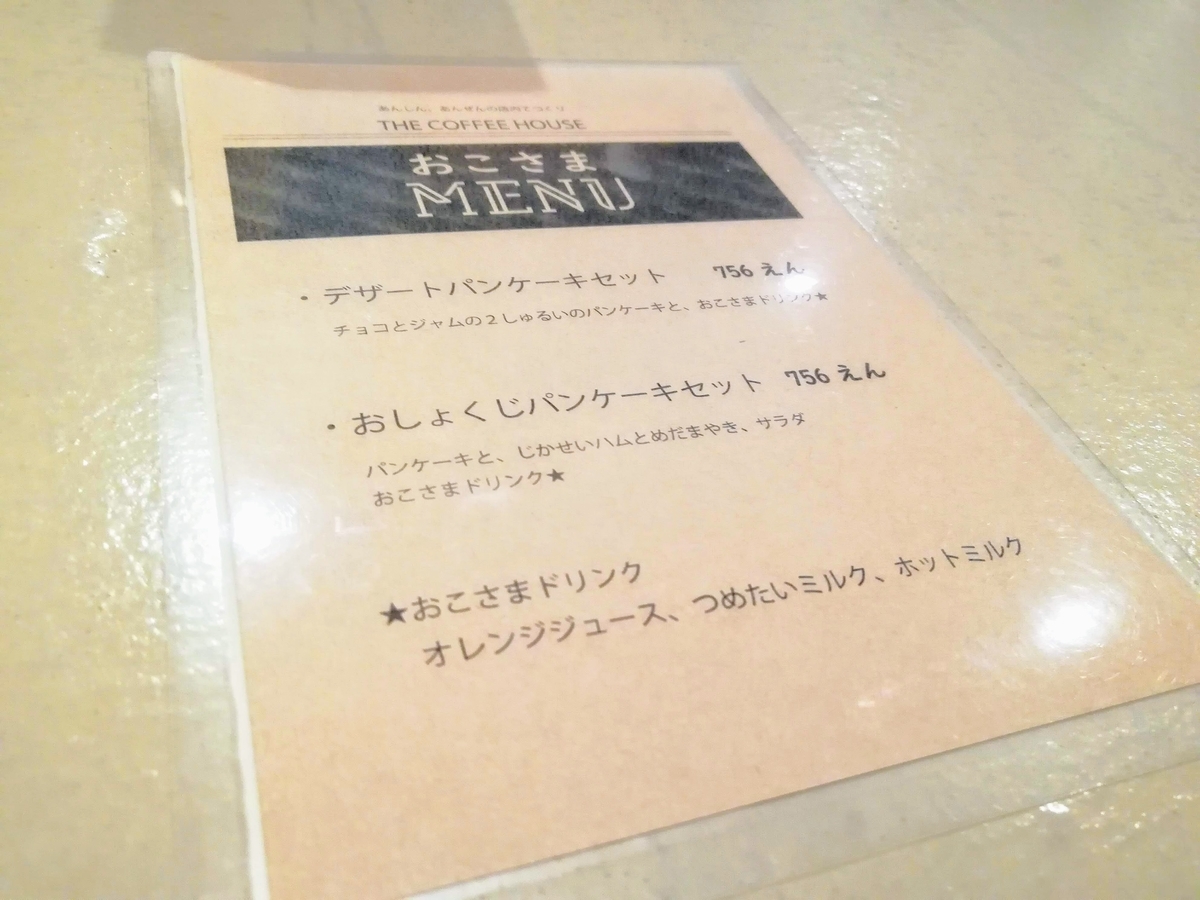 あんしん、あんぜんの店内てづくり
THE COFFEE HOUSE
おこさま
MENU
・デザートパンケーキセット 756 えん
チョコとジャムの2しゅるいのパンケーキと、おこさまドリンク★
・おしょくじパンケーキセット 756 えん
パンケーキと、じかせいハムとめだまやき、サラダ
おこさまドリンク★
★おこさまドリンク
オレンジジュース、つめたいミルク、ホットミルク